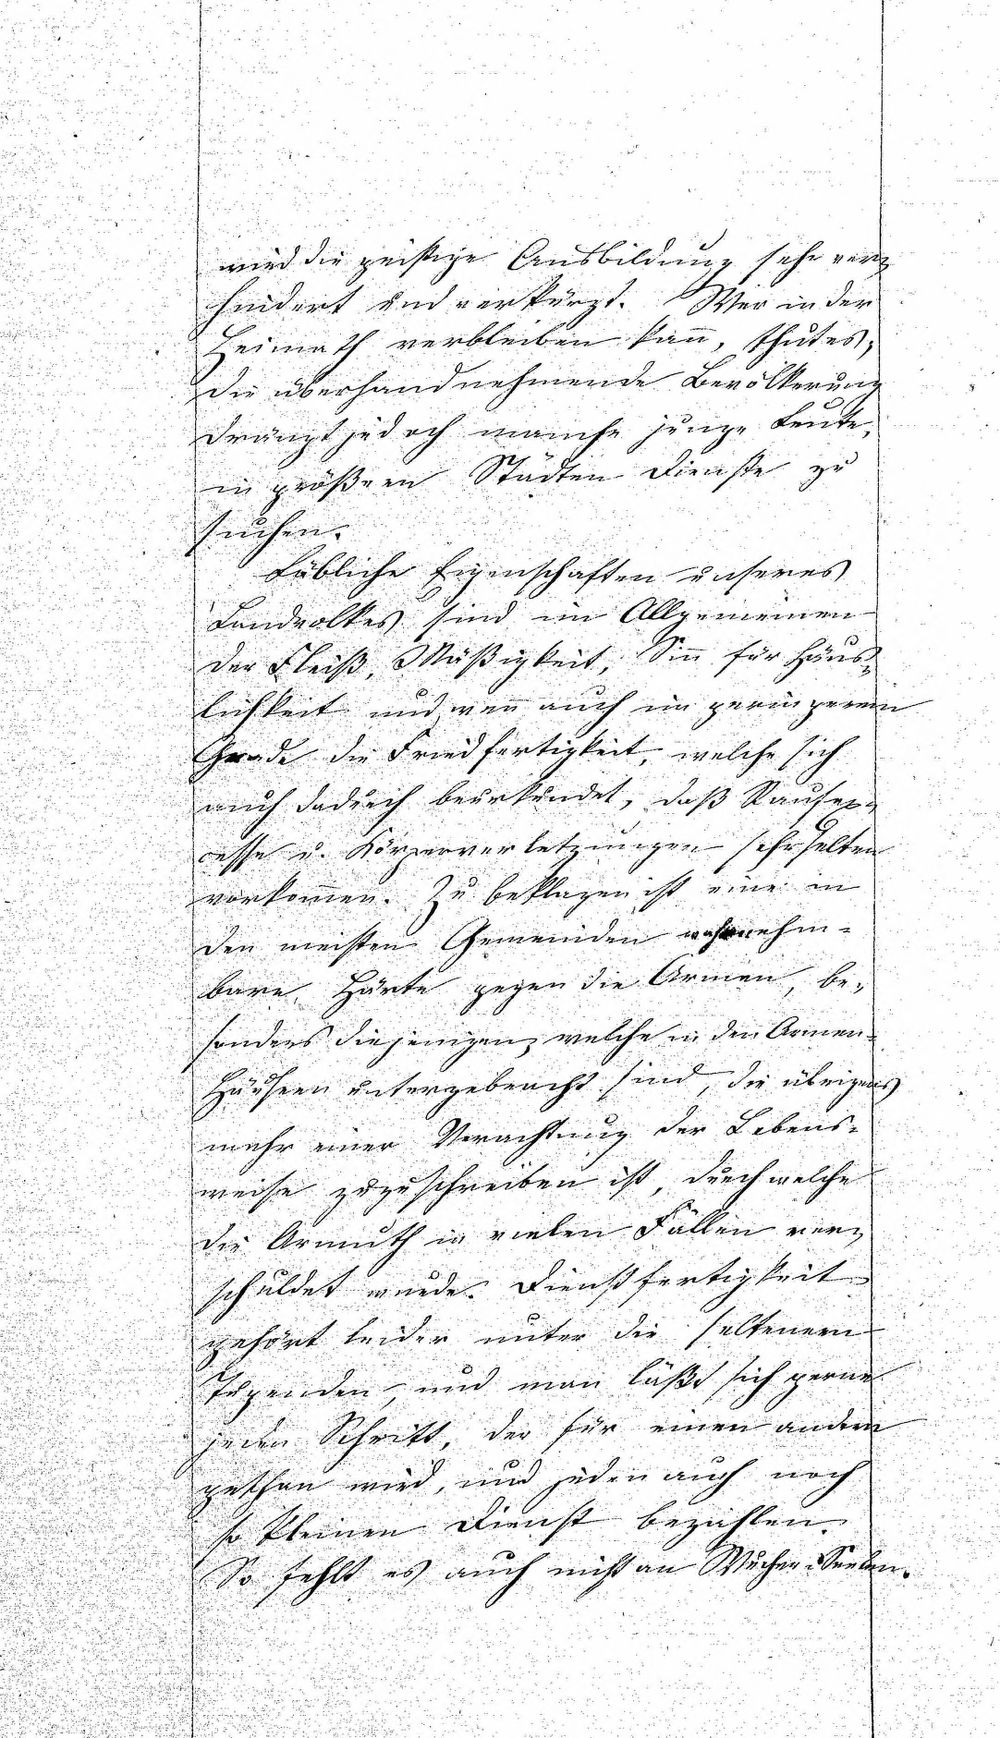 wird die geistige Ausbildung sehr ver-
hindert und verkürzt. Wer in der
Heimath verbleiben kan̄, thut es,
die überhandnehmende Bevölkerung
drängt jedoch manche junge Leute,
in größeren Städten Dienste zu
suchen.
Löbliche Eigenschaften unseres
Landvolkes sind im Allgemeinen
der Fleiß, Mäßigkeit, Sin̄ für Häus-
lichkeit und wen̄ auch im geringeren
Grade die Friedfertigkeit, welche sich
auch dadurch beurkundet, daß Raufex-
cesse u. Körperverletzungen sehr selten
vorkom̄en. Zu beklagen ist eine in
den meisten Gemeinden wahrnehm-
bare Härte gegen die Armen, be-
sonders diejenigen, welche in den Armen-
Häusern untergebracht sind, die übrigens
mehr einer Verachtung der Lebens-
weise zuzuschreiben ist, durch welche
die Armuth in vielen Fällen ver-
schuldet wurde. Dienstfertigkeit
gehört leider unter die seltenern
Tugenden, und man läßt sich gerne
jeden Schritt, der für einen andern
gethan wird, und jeden auch noch
so kleinen Dienst bezahlen.
So fehlt es auch nicht an Wucher-Seelen.